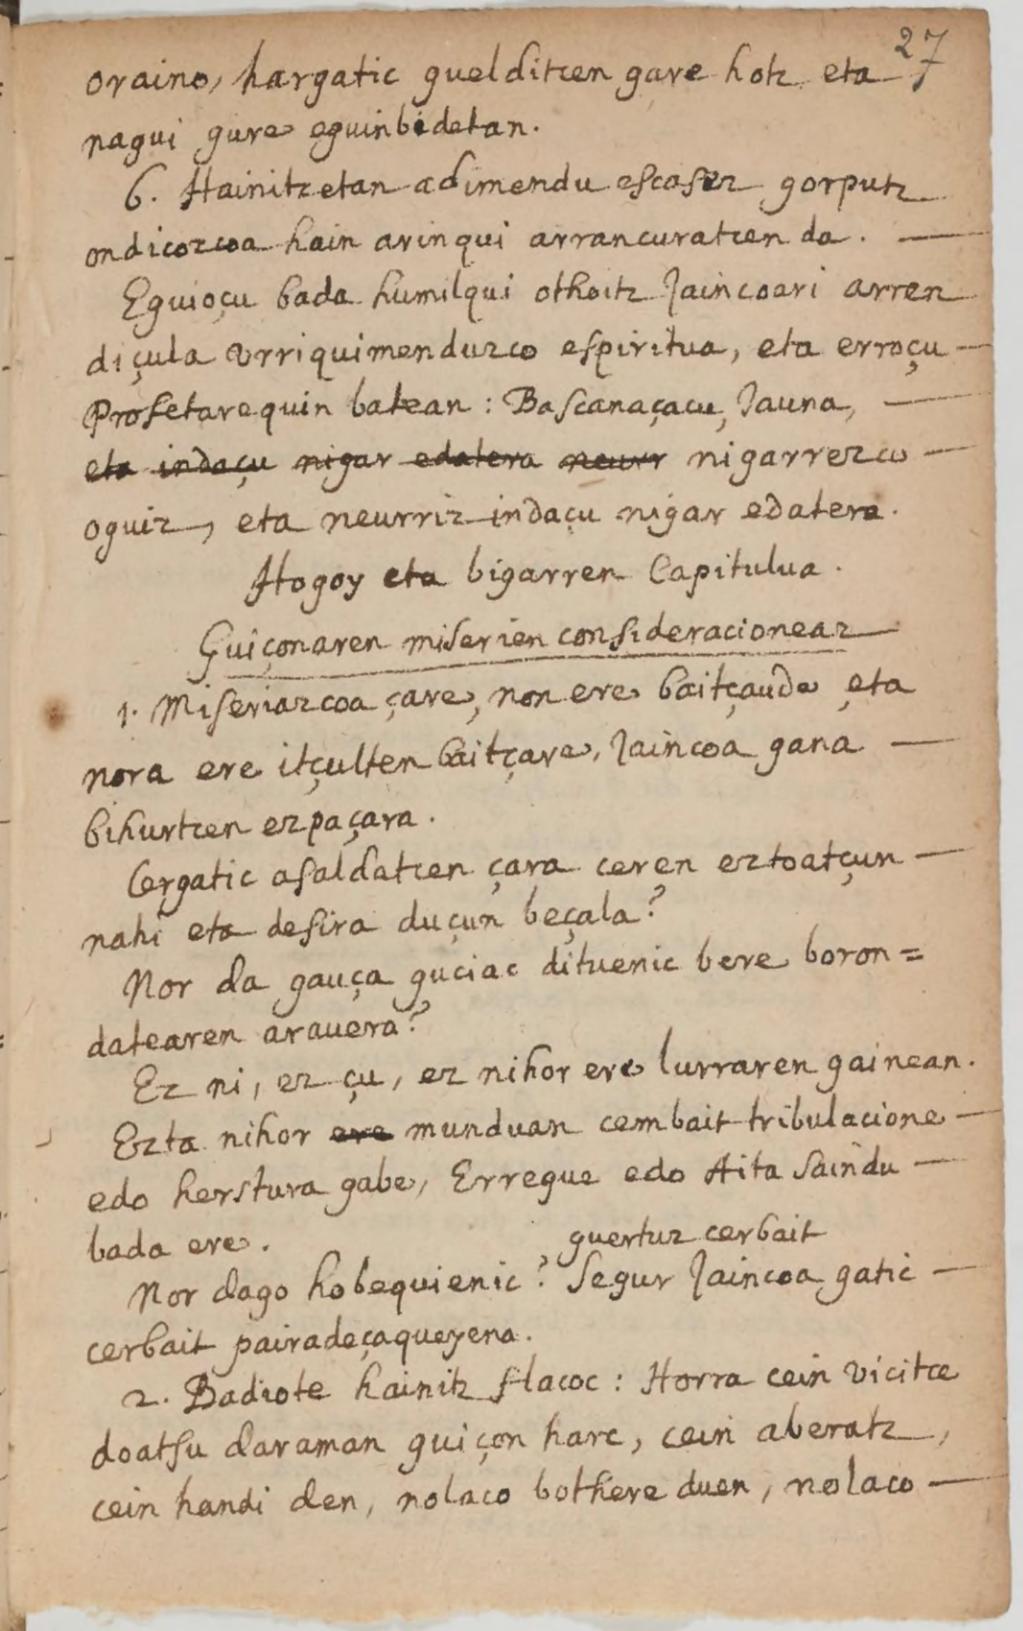 27
oraino, hargatic guelditcen gare hotz eta
nagui gure eguinbidetan.
6. Hainitzetan adimendu escasez gorputz
ondicozcoa hain arinqui arrancuratcen da. —
Eguioçu bada humilqui othoitz Jaincoari arren
diçula vrriquimenduzco espiritua, eta erroçu —
Profetarequin batean : Bascanaçaçu, Jauna, —
eta indaçu nigar edatera neurr nigarrezco —
oguiz, eta neurriz indaçu nigar edatera.
Hogoy eta bigarren Capitulua.
Guiçonaren miserien consideracioneaz
1. Miseriazcoa çare, non ere baitçaude, eta
nora ere itçulten baitçare, Jaincoa gana —
bihurtcen ezpaçara.
Cergatic asaldatcen çara ceren eztoatçun —
nahi eta desira duçun beçala?
Nor da gauça guciac dituenic bere boron=
datearen arauera?
Ez ni, ez çu, ez nihor ere lurraren gainean.
Ezta nihor ere munduan cembait tribulacione —
edo herstura gabe, Erregue edo Aita Saindu —
bada ere.
guertuz cerbait
Nor dago hobequienic? Segur Jaincoa gatic —
cerbait pairadeçaqueyena.
2. Badiote hainitz flacoc : Horra cein vicitce
doatsu daraman guiçon harc, cein aberatz,
cein handi den, nolaco bothere duen, nolaco —